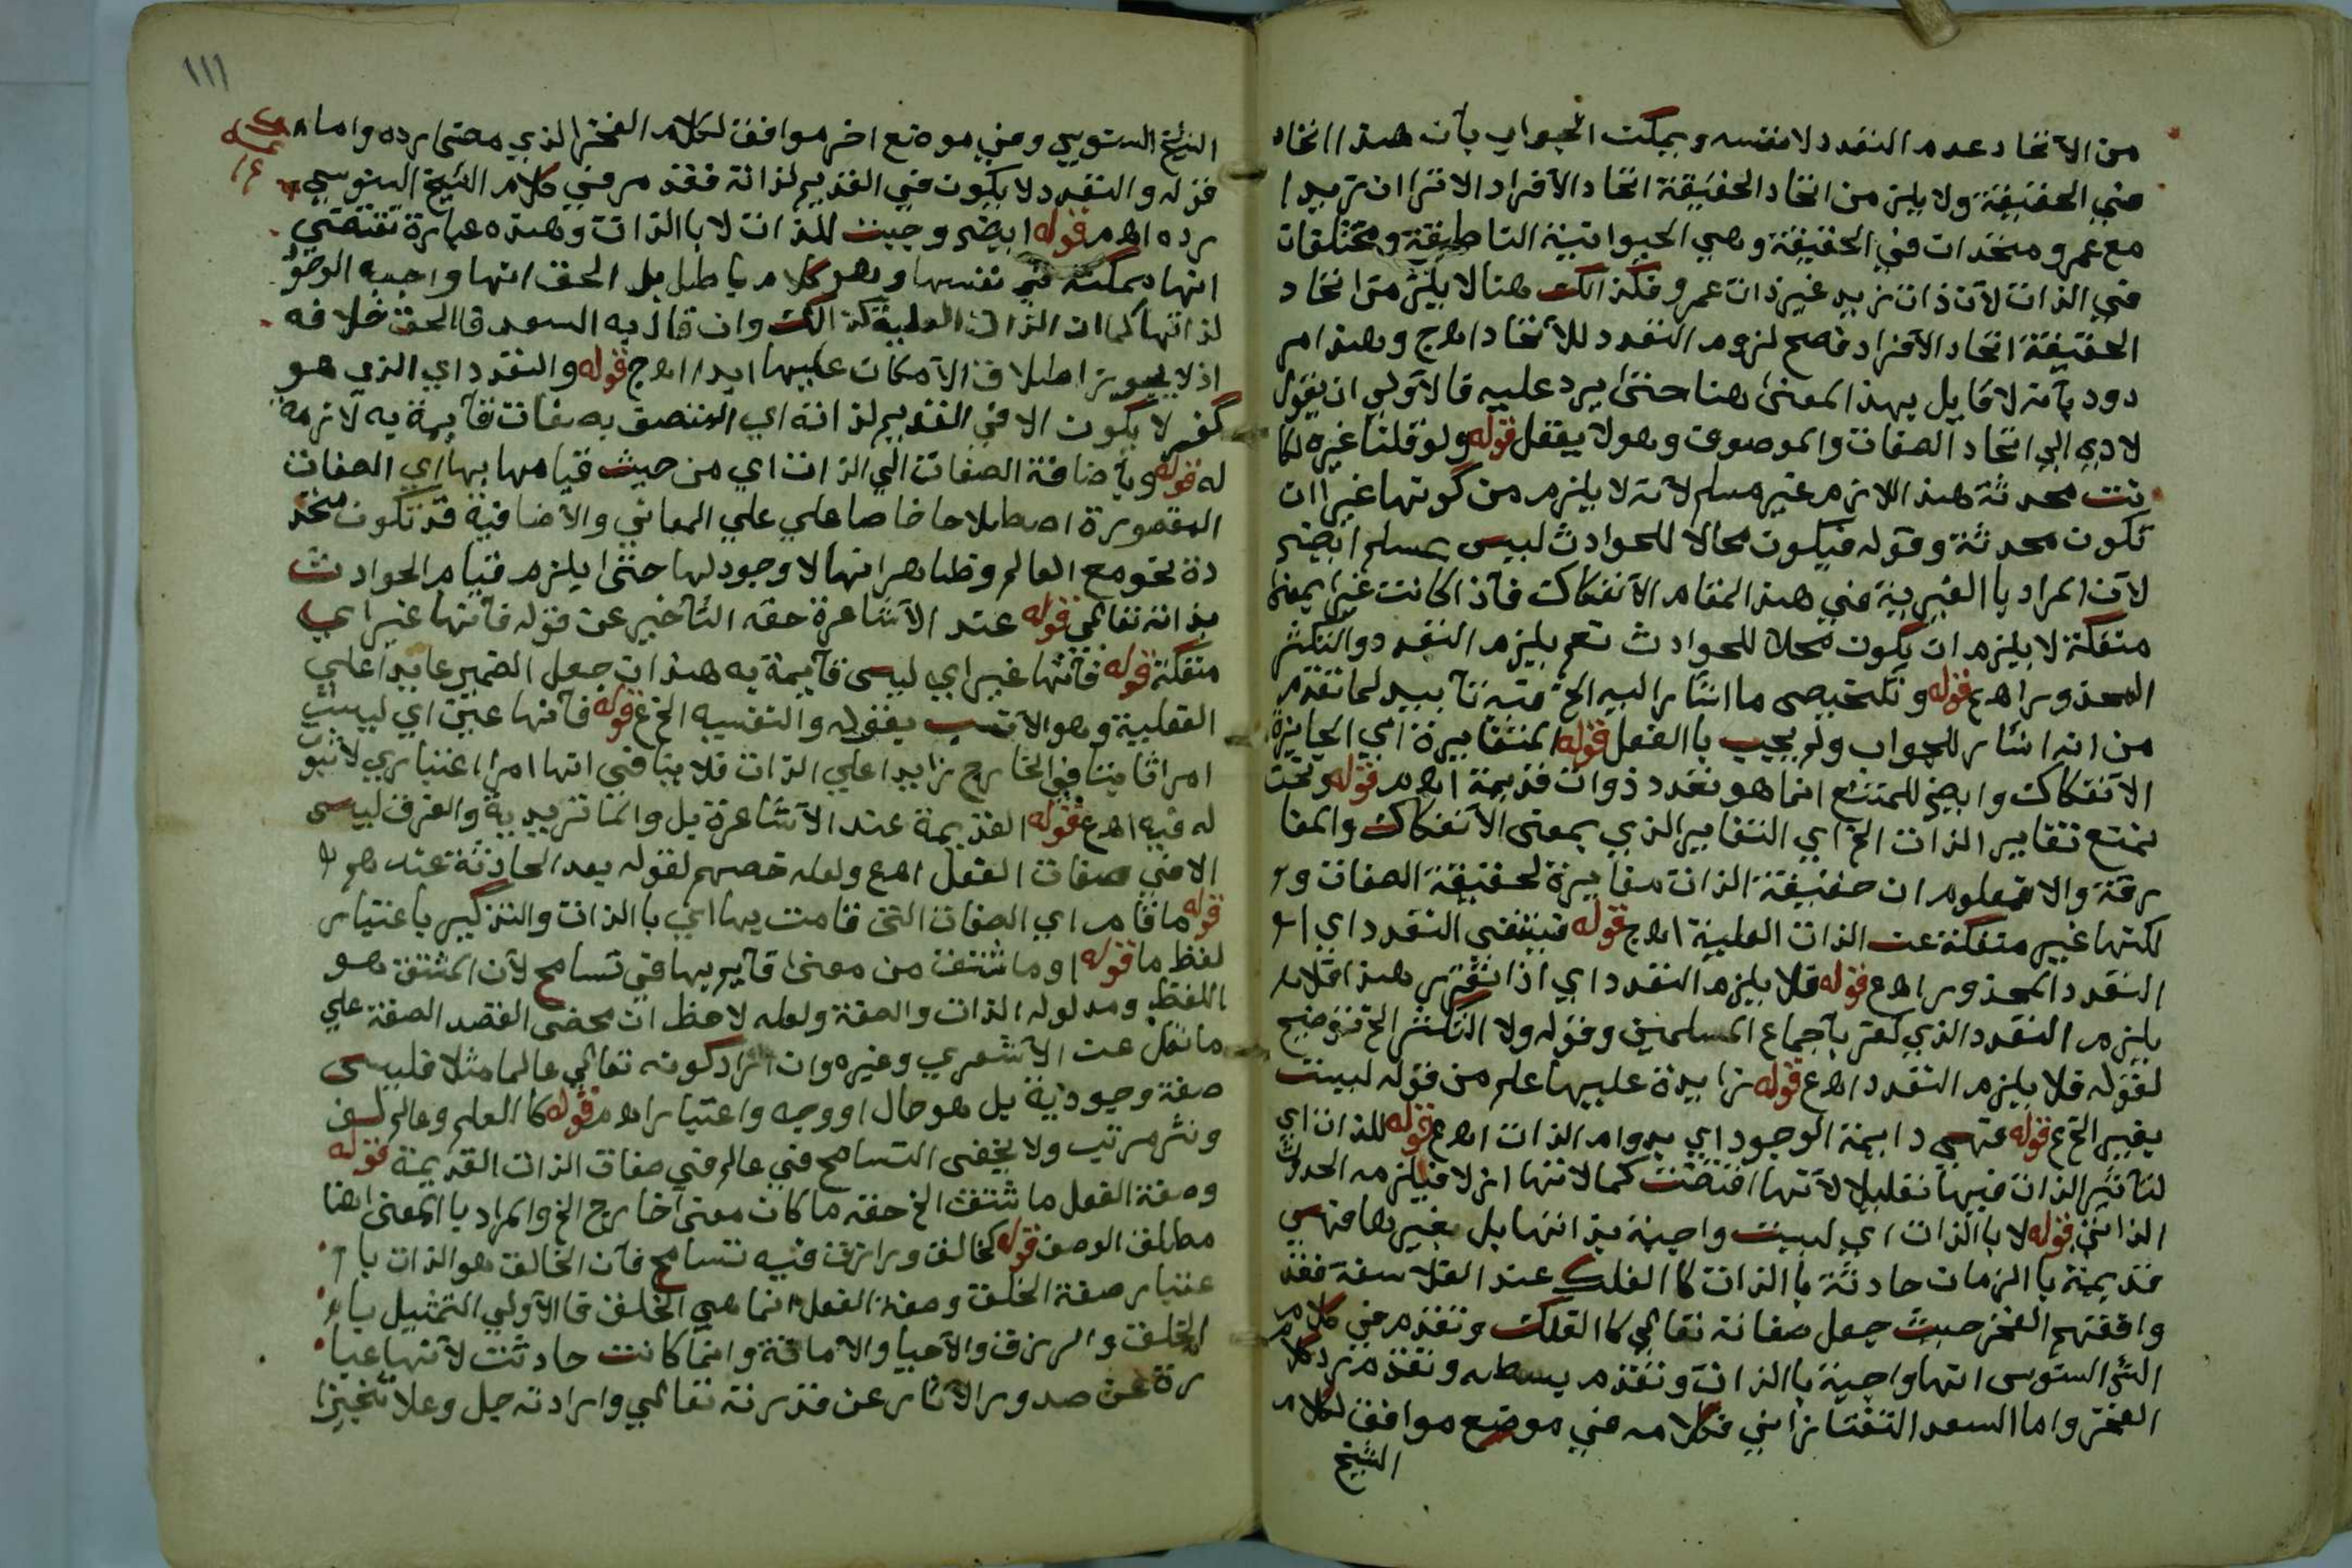 من الاتحاد عدم التعدد لا نفسه ويمكن الجواب بأن هذا اتحاد
في الحقيقة ولا يلزم من اتحاد الحقيقة اتحاد الأفراد الا ترا ان زيدا
مع عمرو متحدان في الحقيقة وهي الحيوانية الناطقة ومختلفان
في الذات لأن ذات زيد غير ذات عمرو فكذالك هنا لا يلزم من اتحاد
الحقيقة اتحاد الأفراد فصح لزوم التعدد للأتحاد اهج وهذا مر
دود بأنه لا قايل بهذا المعنى هنا حتى يرد عليه فالأولى ان يقول
لادى الي اتحاد الصفات والموصوف وهو لا يعقل قوله ولو قلنا غيره لكا
نت محدثة هذا اللازم غير مسلم لأنه لا يلزم من كونها غيرا ان
تكون محدثة وقوله فيكون محالا للحوادث ليس بمسلم ايضم
لأن المراد با الغيرية في هذا المقام الأنفكاك فأذا كانت غيرا بمعنى
منفكة لا يلزم ان يكون محلا للحوادث نعم يلزم التعدد والتكثر
المحذور اهع قوله وتلخيص ما اشار اليه الخ فيه تأييد لما تقدم
من انه اشار للجواب ولم يجيب با الفعل قوله المتغايرة اي الجايزة
الأنفكاك وايضم للمتنع انما هو تعدد ذوات قديمة اهم قوله ونحن
نمنع تغاير الذات الخ اي التغاير الذي بمعنى الأنفكاك والمفا
رقة والا فمعلوم ان حقيقة الذات مغايرة لحقيقة الصفات و
لكنها غير منفكة عن الذات العلية اهج قوله فينتفى التعدد اي
التعدد المحذور اهع قوله فلا يلزم التعدد اي اذا تقرر هذا فلا
يلزم التعدد الذي كفر بأجماع المسلمين وقوله ولا التكثر الخ توضيح
لقوله فلا يلزم التعدد اهع قوله زايدة عليها علم من قوله ليست
بغير الخ ع قوله فهي دايمة الوجود اي بدوام الذات اهع قوله للذات اي
لتأثير الذات فيها تعليلا لأنها اقتضت كمالاتها ازلا فيلزمه الحدوث
الذاتي قوله لا با الذات اي ليست واجبة بذاتها بل بغيرها فهي
قديمة با الزمان حادثة با الذات كا الفلك عند الفلاسفة فقد
وافقهم الفخر حيث جعل صفاته تعالي كا الفلك وتقدم في كلام
الشم السنوسى انها واجبة با الذات وتقدم بسطه وتقدم رد كلام
الفخر واما السعد التفتازاني فكلامه في موضع موافق لكلام
الشيخ
١١١
الشيخ السنوسي وفي موضع اخر موافق لكلام الفخر الذي مضى رده واما
قوله والتعدد لا يكون في القديم لذاته فقد مر في كلام الشيخ السنوسي
رده اهم قوله ايضم وجبت للذات لا با الذات وهذه عبارة تقتضي
انها ممكنة في نفسها وهو كلام باطل بل الحق انها واجبه الوجو
لذاتها كما ان الذات العلية كذالك وان قال به السعد فا الحق خلافه
اذ لا يجوز اطلاق الأمكان عليها ابدا اهج قوله والتعدد اي الذي هو
كفر لا يكون الا في القديم لذاته اي المتصف بصفات قأيمة به لازمة
له قوله وبأضافة الصفات الي الذات اي من حيث قيامها بها اي الصفات
المقصورة اصطلاحا خاصا علي علي المعاني والأضافية قد تكون متجد
دة نحو مع العالم وظاهر انها لا وجود لها حتى يلزم قيام الحوادث
بذاته تعالي قوله عند الأشاعرة حقه التأخير عن قوله فأنها غير اي
منفكة قوله فأنها غير اي ليس قأيمة به هذا ان جعل الضمير عايدا علي
الفعلية وهو الأنسب بقوله والنفسيه الخ ع قوله فأنها عين اي ليست
امرا ثابتا في الخارج زايدا علي الذات فلا ينافي انها امرا اعتباري لا ثبو
له فيه اهع قوله القديمة عند الأشاعرة بل والما تزيدية والفرق ليس
الا في صفات الفعل اهع ولعله خصهم لقوله بعد الحادثة عنه هو
قوله ما قام اي الصفات التي قامت بها اي با الذات والتذكير باعتبار
لفظ ما قوله اوما شتق من معنى قأيم بها في تسامح لأن المشتق هو
اللفظ ومدلوله الذات والصفة ولعله لاحظ ان محض القصد الصفة علي
ما نقل عن الأشعري وغيره وان اراد كونه تعالي عالما مثلا فليس
صفة وجودية بل هو حال او وجه واعتبار اهم قوله كا العلم وعالم لف
ونشر مرتب ولا يخفى التسامح في عالم في صفات الذات القديمة قوله
وصفة الفعل ما شتق الخ حقه ما كان معنى خارج الخ والمراد با المعنى هنا
مطلق الوصف قوله كخالق ورازق فيه تسامح فأن الخالق هو الذات با
عتبار صفة الخلق وصفة الفعل انما هي الخلق فا الأولى التمثيل با
الخلق والرزق والأحيا والأماتة وانما كانت حادثت لأنها عبا
رة عن صدور الآثار عن قدرته تعالي وارادته جل وعلا تنجيزا